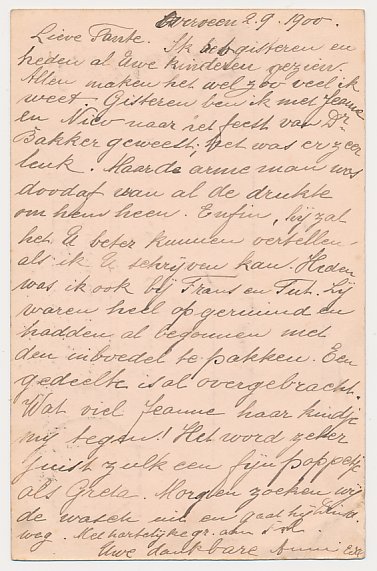 2.9.1900.
Lieve Tante. Ik heb gisteren en
heden al Uwe kinderen gezien.
Allen maken het wel zoo veel ik
weet. Gisteren ben ik met Jeanne
en Nico naar 't feest van Dr
Bakker geweest; het was er zeer
leuk. Maar de arme man was
doodaf van al de drukte
om hem heen. Enfin, hij zal
het U beter kunnen vertellen
als ik U schrijven kan. Heden
was ik ook bij Frans en Zij
waren heel opgeruimd en
hadden al begonnen met
den inboedel te pakken. Een
gedeelte is al overgebracht.
Wat viel Jeanne haar kindje
mij tegen! Het word zeker
juist zulk een fijn poppetje
als Greta. Morgen zoeken wij
de wasch uit en gaat hij
weg. Met hartelijke gr. aan
Uwe dankbare